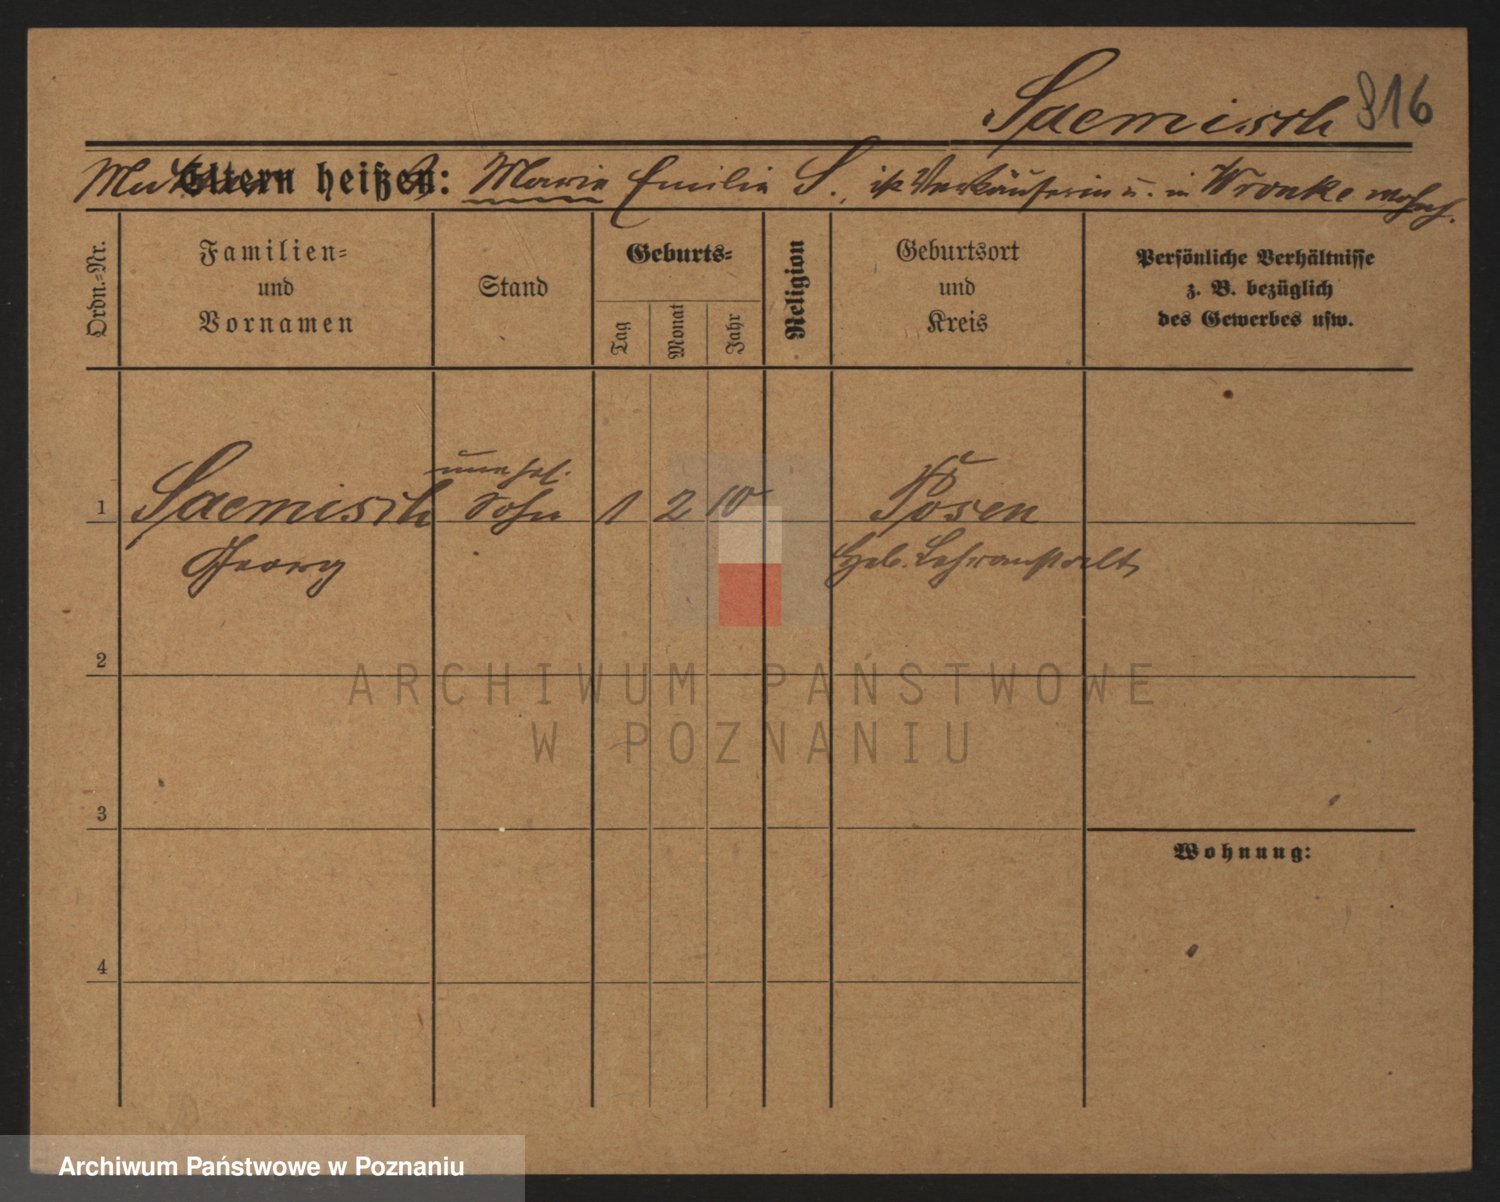 Saemisch 816
Mutter Eltern heißen: Marie Emilie S., ist Verkäuferin u. in Wronke wohnh.
Ordn.-Nr.
Familien-
und
Vornamen
Stand
Geburts-
Tag
Monat
Jahr
Religion
Geburtsort
und
Kreis
Persönliche Verhältnisse
z. B. bezüglich
des Gewerbes usw.
unehel.
1 Saemisch Sohn 1 2 10 Posen
Georg Heb. Lehranstalt
2
ARCHIWUM PAŃSTWOWE
W POZNANIU
3
Wohnung:
4
Archiwum Państwowe w Poznaniu